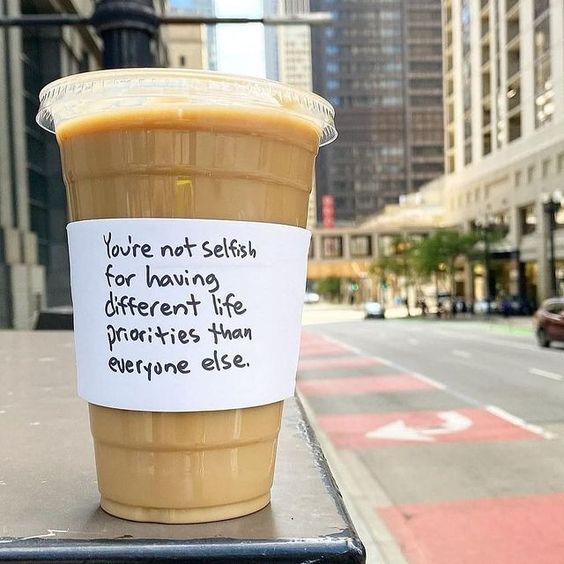 You're not selfish
for having
different life
priorities than
everyone else.